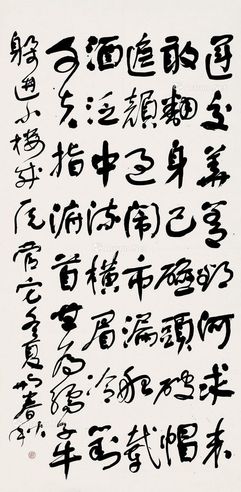 運交華蓋欲何求未
敢翻身已碰頭破帽
遮顏過鬧市漏船載
酒泛中流橫眉冷對
千夫指俯首甘為孺子牛
躲進小樓成一統管它冬夏與春秋